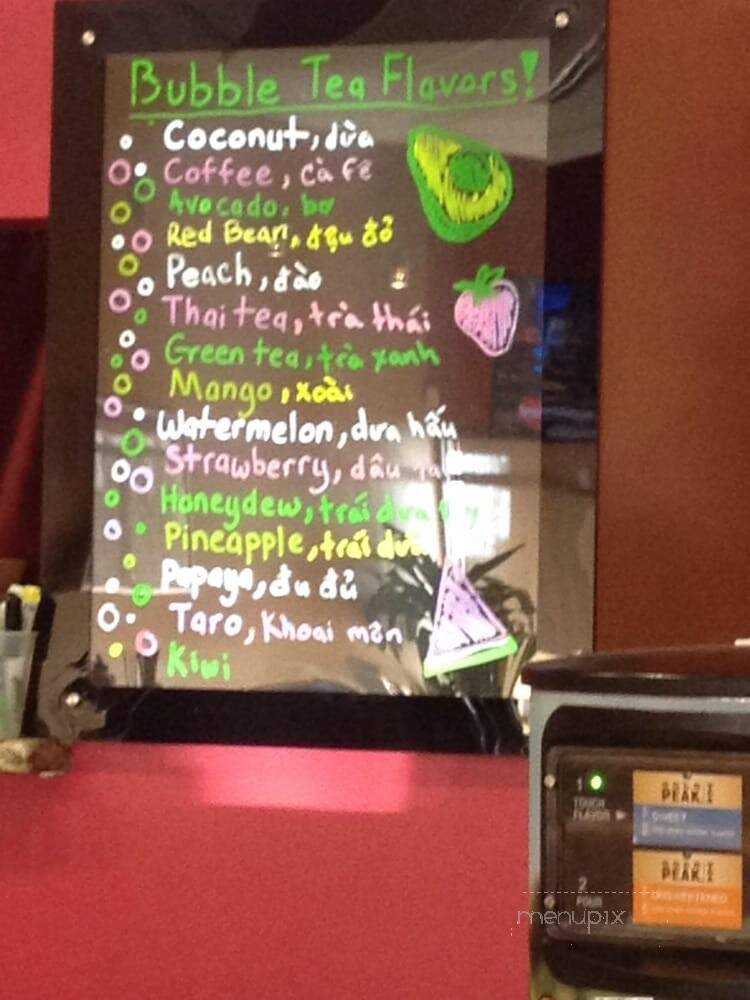 Bubble Tea Flavors!
Coconut, dừa
Coffee, cà fê
Avocado, bơ
Red Bean, đậu đỏ
Peach, đào
Thai tea, trà thái
Green tea, trà xanh
Mango, xoài
Watermelon, dưa hấu
Strawberry, dâu
Honeydew, trái dưa
Pineapple, trái dứa
Papaya, đu đủ
Taro, khoai môn
Kiwi
1
TOUCH
FLAVOR
PEAK
SWEET
2
POUR
PEAK
UNSWEETENED
menupix